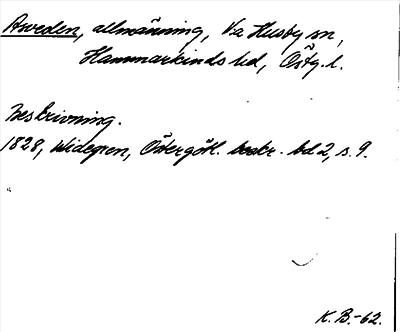 Asveden, allmänning, V:a Husby sn,
Hammarkinds hd, Östg. l.
Beskrivning.
1828, Widegren, Östergötl. beskr. bd 2, s. 9.
K. B. -62.